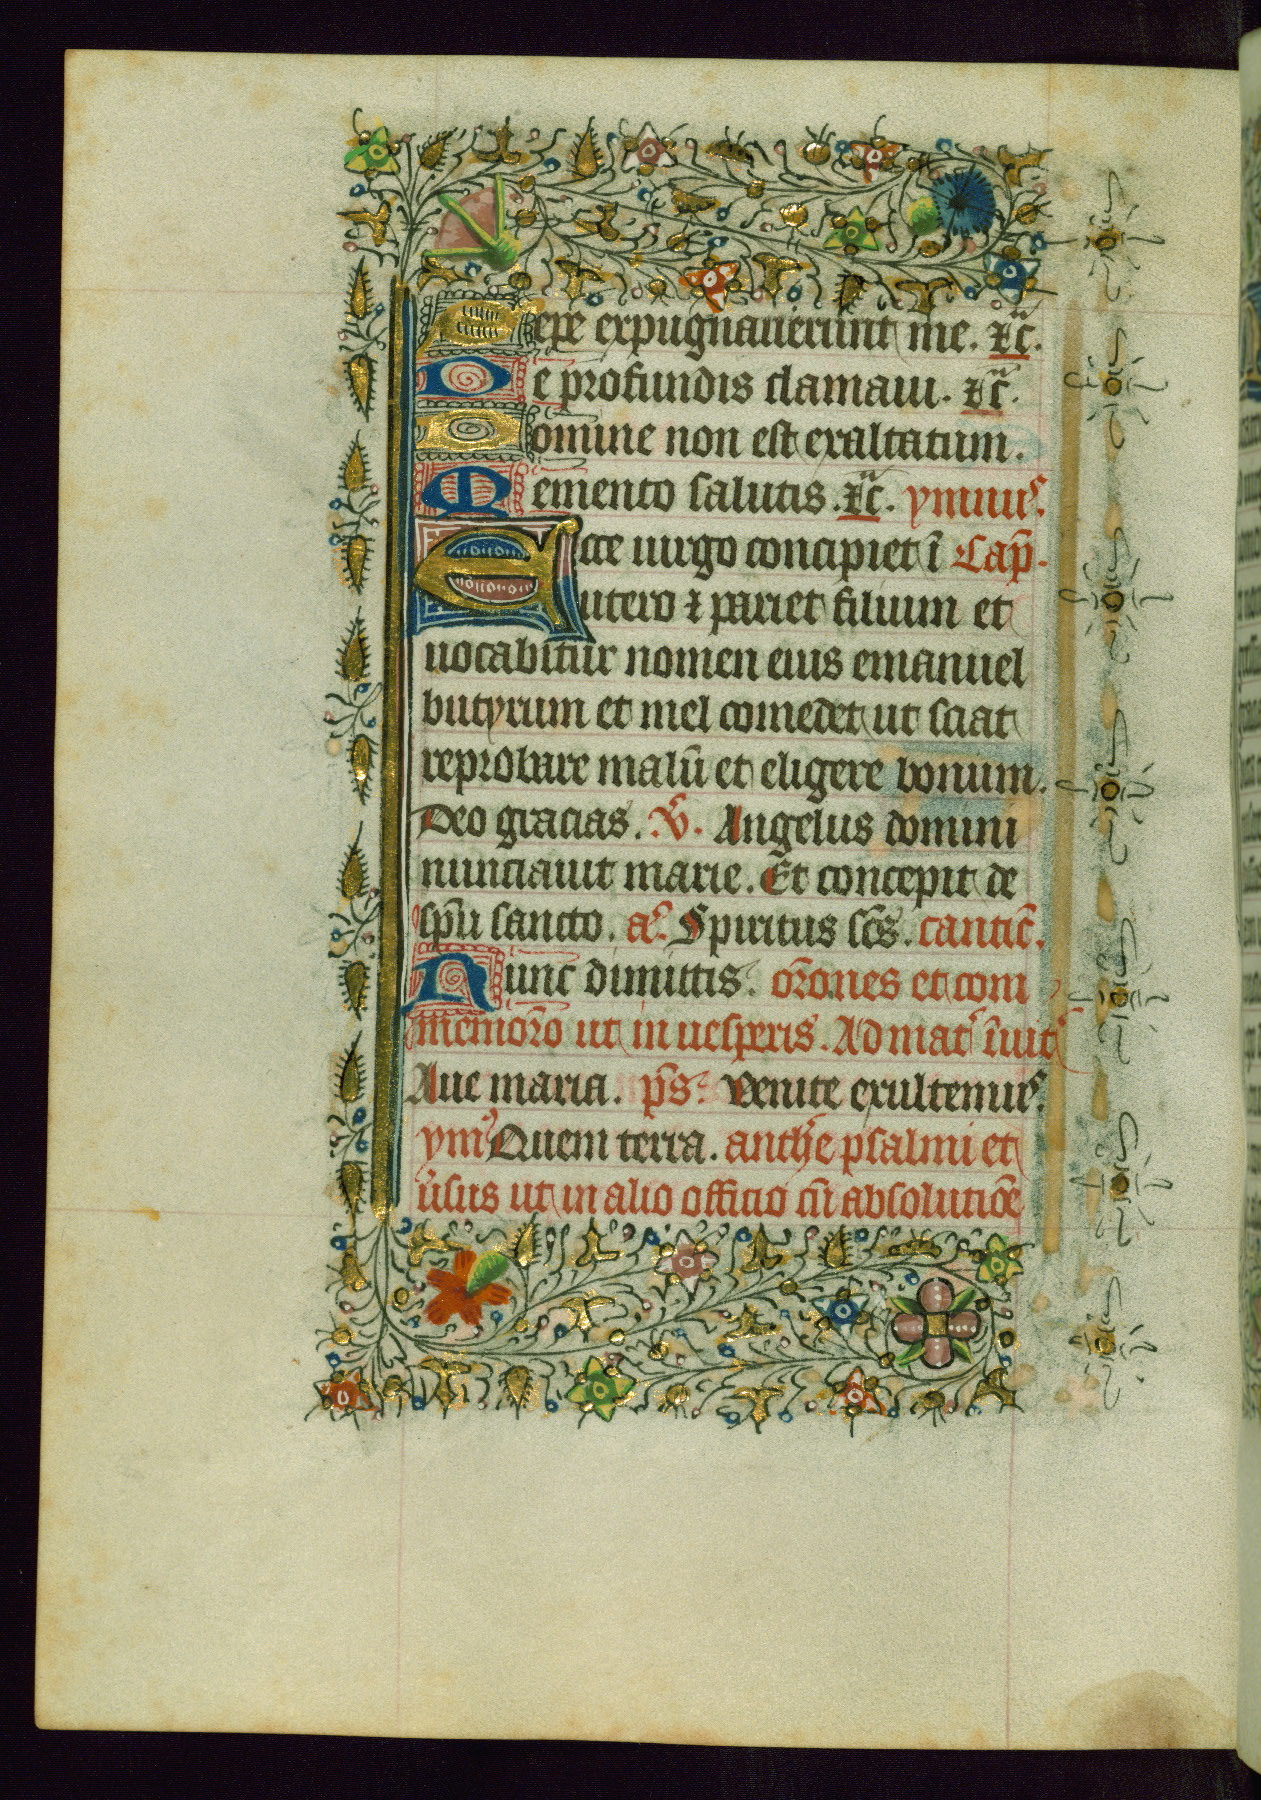 Sepe expugnauerunt me. ⁊c̄.
De profundis clamaui. ⁊c̄.
Domine non est exaltatum.
Memento salutis. ⁊c̄. ymnus.
Ecce uirgo concipiet ī Cap̄.
utero ⁊ pariet filium et
uocabitur nomen eius emanuel
butyrum et mel comedet ut sciat
reprobare malū et eligere bonum.
Deo gracias. V̄. Angelus domini
nunciauit marie. Et concepit de
sp̄u sancto. a᷒. Spiritus sc̄s. cantic̄.
Nunc dimittis. or̄ones et com
memor̄o ut in uesperis. Ad mat᷒ īuit᷒
Aue maria. ps̄. Venite exultemus.
ym᷒ Quem terra. anthē psalmi et
u᷒sus ut in alio officio cū absolutiōe